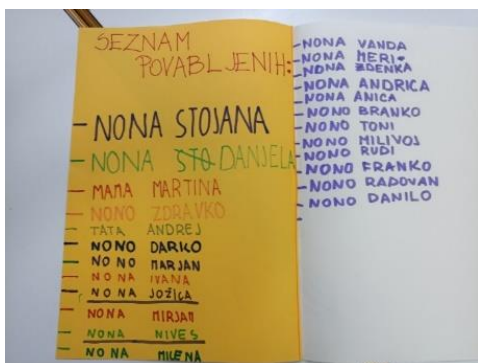 SEZNAM
POVABLJENIH:
- NONA STOJANA
- NONA STO DANJELA
- MAMA MARTINA
- NONO ZDRAVKO
- TATA ANDREJ
- NONO DARKO
- NONO MARJAN
- NONA IVANA
- NONA JOŽICA
- NONA MIRJAM
- NONA NIVES
- NONA MILENA
- NONA VANDA
- NONA MERI
- NONA ZDENKA
- NONA ANDRICA
- NONA ANICA
- NONO BRANKO
- NONO TONI
- NONO MILIVOJ
- NONO RUDI
- NONO FRANKO
- NONO RADOVAN
- NONO DANILO
-